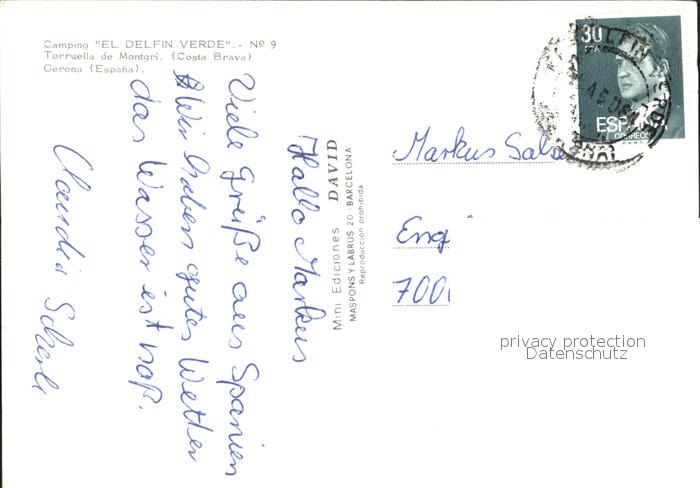 Camping "EL DELFIN VERDE".- Nº 9
Torruella de Montgrí. (Costa Brava)
Gerona (España).
Hallo Markus
Viele Grüße aus Spanien
Wir haben gutes Wetter
das Wasser ist naß.
Claudia
Mini Ediciones DAVID
MASPONS Y LABRUS 20 - BARCELONA
Reproducción prohibida
30
ESPAÑA
CORREOS
F.N.M.T.
Markus
700
privacy protection
Datenschutz